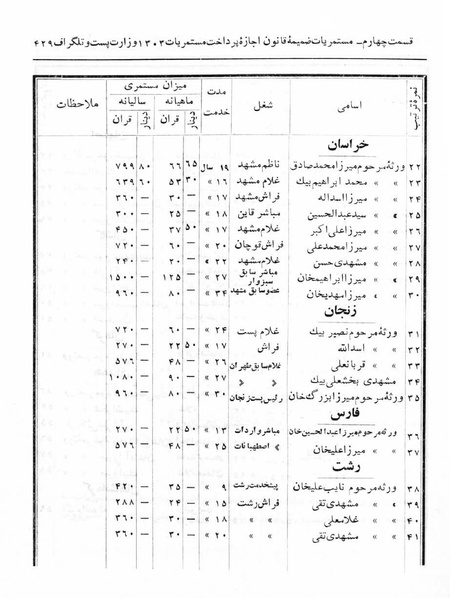 قسمت چهارم ـ مستمریات ضمیمهٔ قانون اجازهٔ پرداخت مستمریات ۱۳۰۳ وزارت پست و تلگراف ۴۲۹
نمرهٔ ترتیب اسامی شغل مدت خدمت میزان مستمری ملاحظات
ماهیانه سالیانه
دینار قران دینار قران
خراسان
۲۲ ورثهٔ مرحوم میرزا محمد صادق ناظم مشهد ۱۹ سال ۶۵ ۶۶ ۸۰ ۷۹۹
۲۳ » » محمد ابراهیم بیك غلام مشهد ۱۶ » ۳۰ ۵۳ ۶۰ ۶۳۹
۲۴ » » میرزا اسداله فراش مشهد ۱۷ » — ۳۰ — ۳۶۰
۲۵ » » سید عبدالحسین مباشر قاین ۱۸ » — ۲۵ — ۳۰۰
۲۶ » » میرزا علی اکبر غلام مشهد ۱۷ » ۵۰ ۳۷ — ۴۵۰
۲۷ » » میرزا محمد علی فراش قوچان ۲۰ » — ۶۰ — ۷۲۰
۲۸ » » مشهدی حسن غلام مشهد ۲۲ » — ۲۰ — ۲۴۰
۲۹ » » میرزا ابراهیمخان مباشر سابق سبزوار ۲۷ » — ۱۲۵ — ۱۵۰۰
۳۰ » » میرزا مهدیخان عضو سابق مشهد ۳۴ » — ۸۰ — ۹۶۰
زنجان
۳۱ ورثهٔ مرحوم نصیر بیك غلام پست ۲۴ » — ۶۰ — ۷۲۰
۳۲ » » اسدالله فراش ۱۷ » ۵۰ ۲۲ — ۲۷۰
۳۳ » » قربانعلی غلام سابق طهران ۲۶ » — ۴۸ — ۵۷۶
۳۴ مشهدی بخشعلی بیك » » ۲۷ » — ۹۰ — ۱۰۸۰
۳۵ ورثهٔ مرحوم میرزا بزرگ خان رئیس پست زنجان ۳۰ » — ۸۰ — ۹۶۰
فارس
۳۶ ورثهٔ مرحوم میرزا عبدالحسین خان مباشر واردات ۱۳ » ۵۰ ۲۲ — ۲۷۰
۳۷ » » میرزا علیخان » اصطهبانات ۲۵ » — ۴۸ — ۵۷۶
رشت
۳۸ ورثهٔ مرحوم نایب علیخان پیشخدمت رشت ۹ » — ۳۵ — ۴۲۰
۳۹ » » مشهدی تقی فراش رشت ۱۵ » — ۲۴ — ۲۸۸
۴۰ » » غلامعلی » » ۱۸ » — ۳۰ — ۳۶۰
۴۱ » » مشهدی تقی » » ۲۰ » — ۳۰ — ۳۶۰